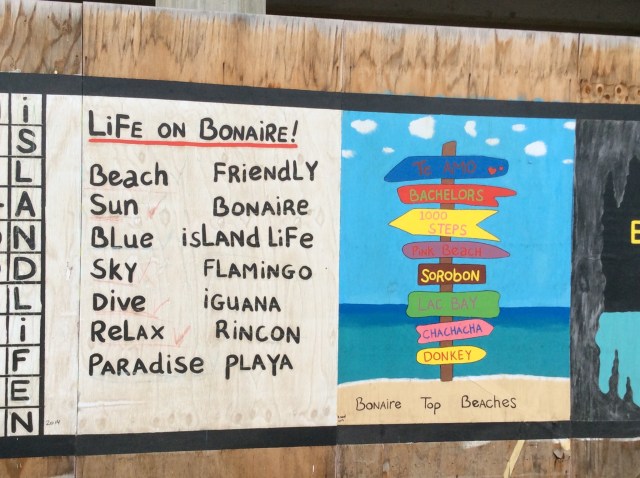 iSLANDLiFEN
LiFE ON BONAiRE!
Beach FRiENdLY
Sun BONAiRE
BLue isLANd LiFe
SKy FLAMiNGO
Dive iGUANA
ReLAX RiNCON
PARAdise PLAYA
2014
Te AMO
BACHELORS
1000
STEPS
PiNK BeACH
SOROBON
LAC BAY
CHACHACHA
DONKEY
BONAiRE TOP BEACHES